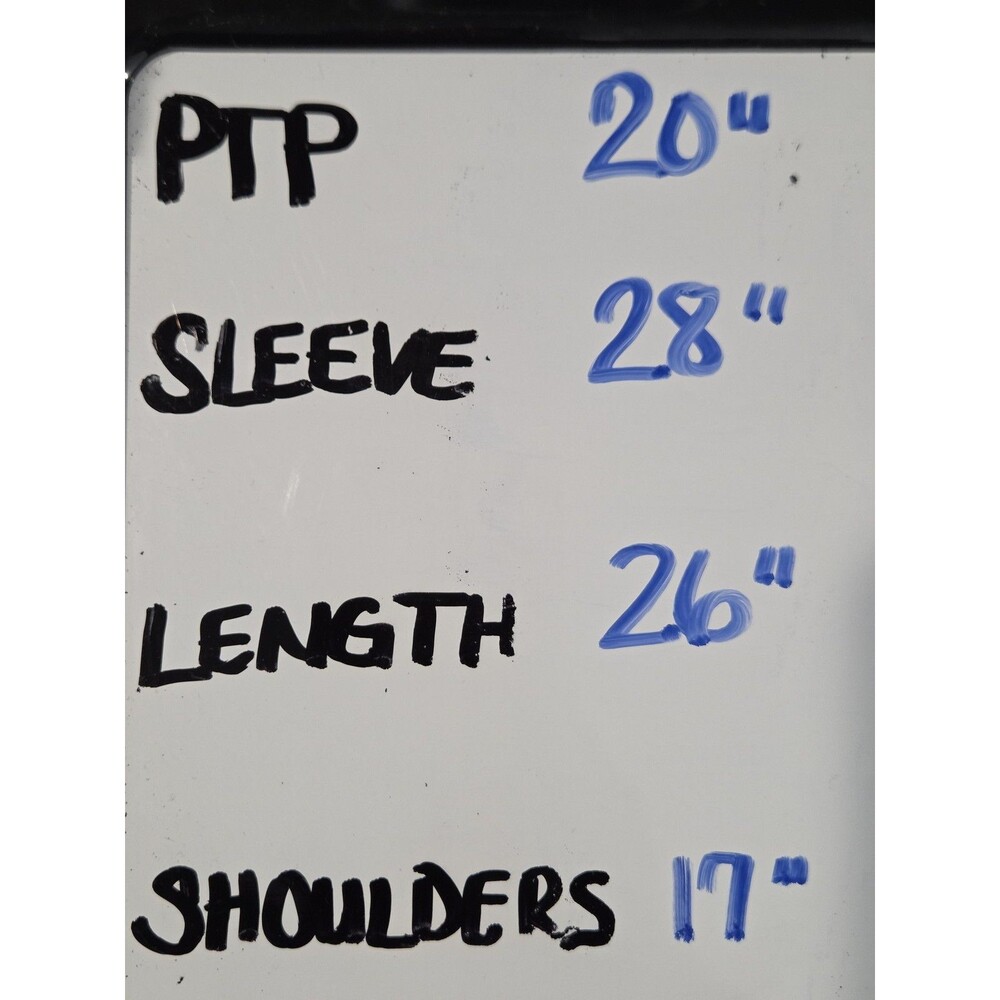 PTP 20"
SLEEVE 28"
LENGTH 26"
SHOULDERS 17"